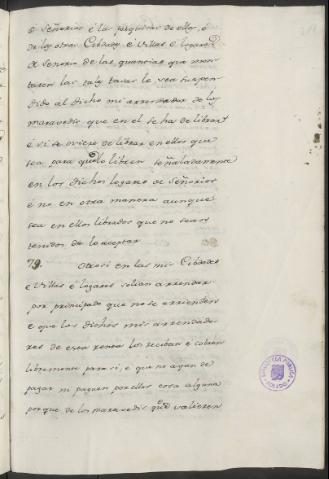 é Señorios é la pesquisa de ellos, ó
de las otras Cibdades é Villas é logares
de Señorio de las quantias que mon-
taren las tales tasas lo sea suspen-
dido al dicho mi arrendador de los
maravedis que en el se ha de librar
é si se oviere de librar en ellos que
sea para que lo libren señaladamente
en los dichos logares de Señorios
é no en otra manera aunque
sea en ellos librados que no sean
tenidos de lo aceptar.
79. Otrosi en las mis Cibdades
é Villas é logares solian arrendar
por principado que no se arrienden
é que los dichos mis arrendado-
res de esta renta los reciban é cobren
libremente para si, é que no ayan de
pagar ni paguen por ellos cosa alguna
porque de los maravedis que valieren
BIBLIOTECA PUBLICA